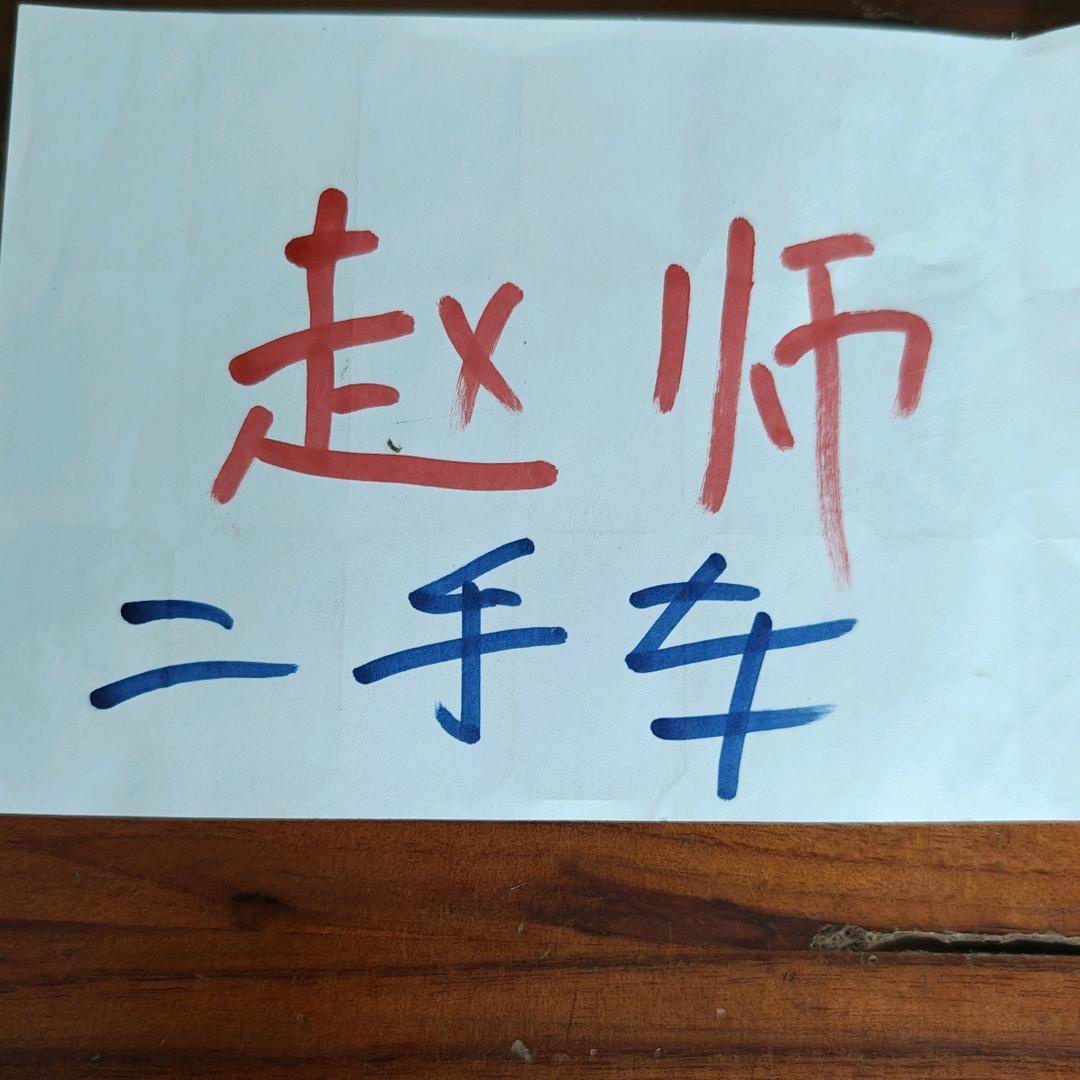 赵师
二手车